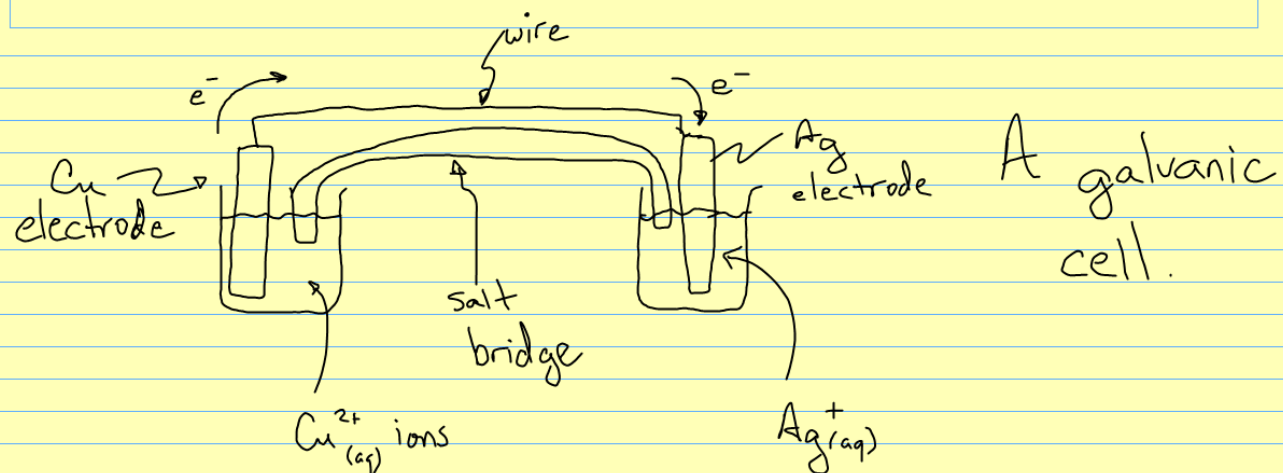 wire
e⁻
e⁻
Cu
electrode
Ag
electrode
A galvanic
cell.
salt
bridge
Cu²⁺(aq) ions
Ag⁺(aq)